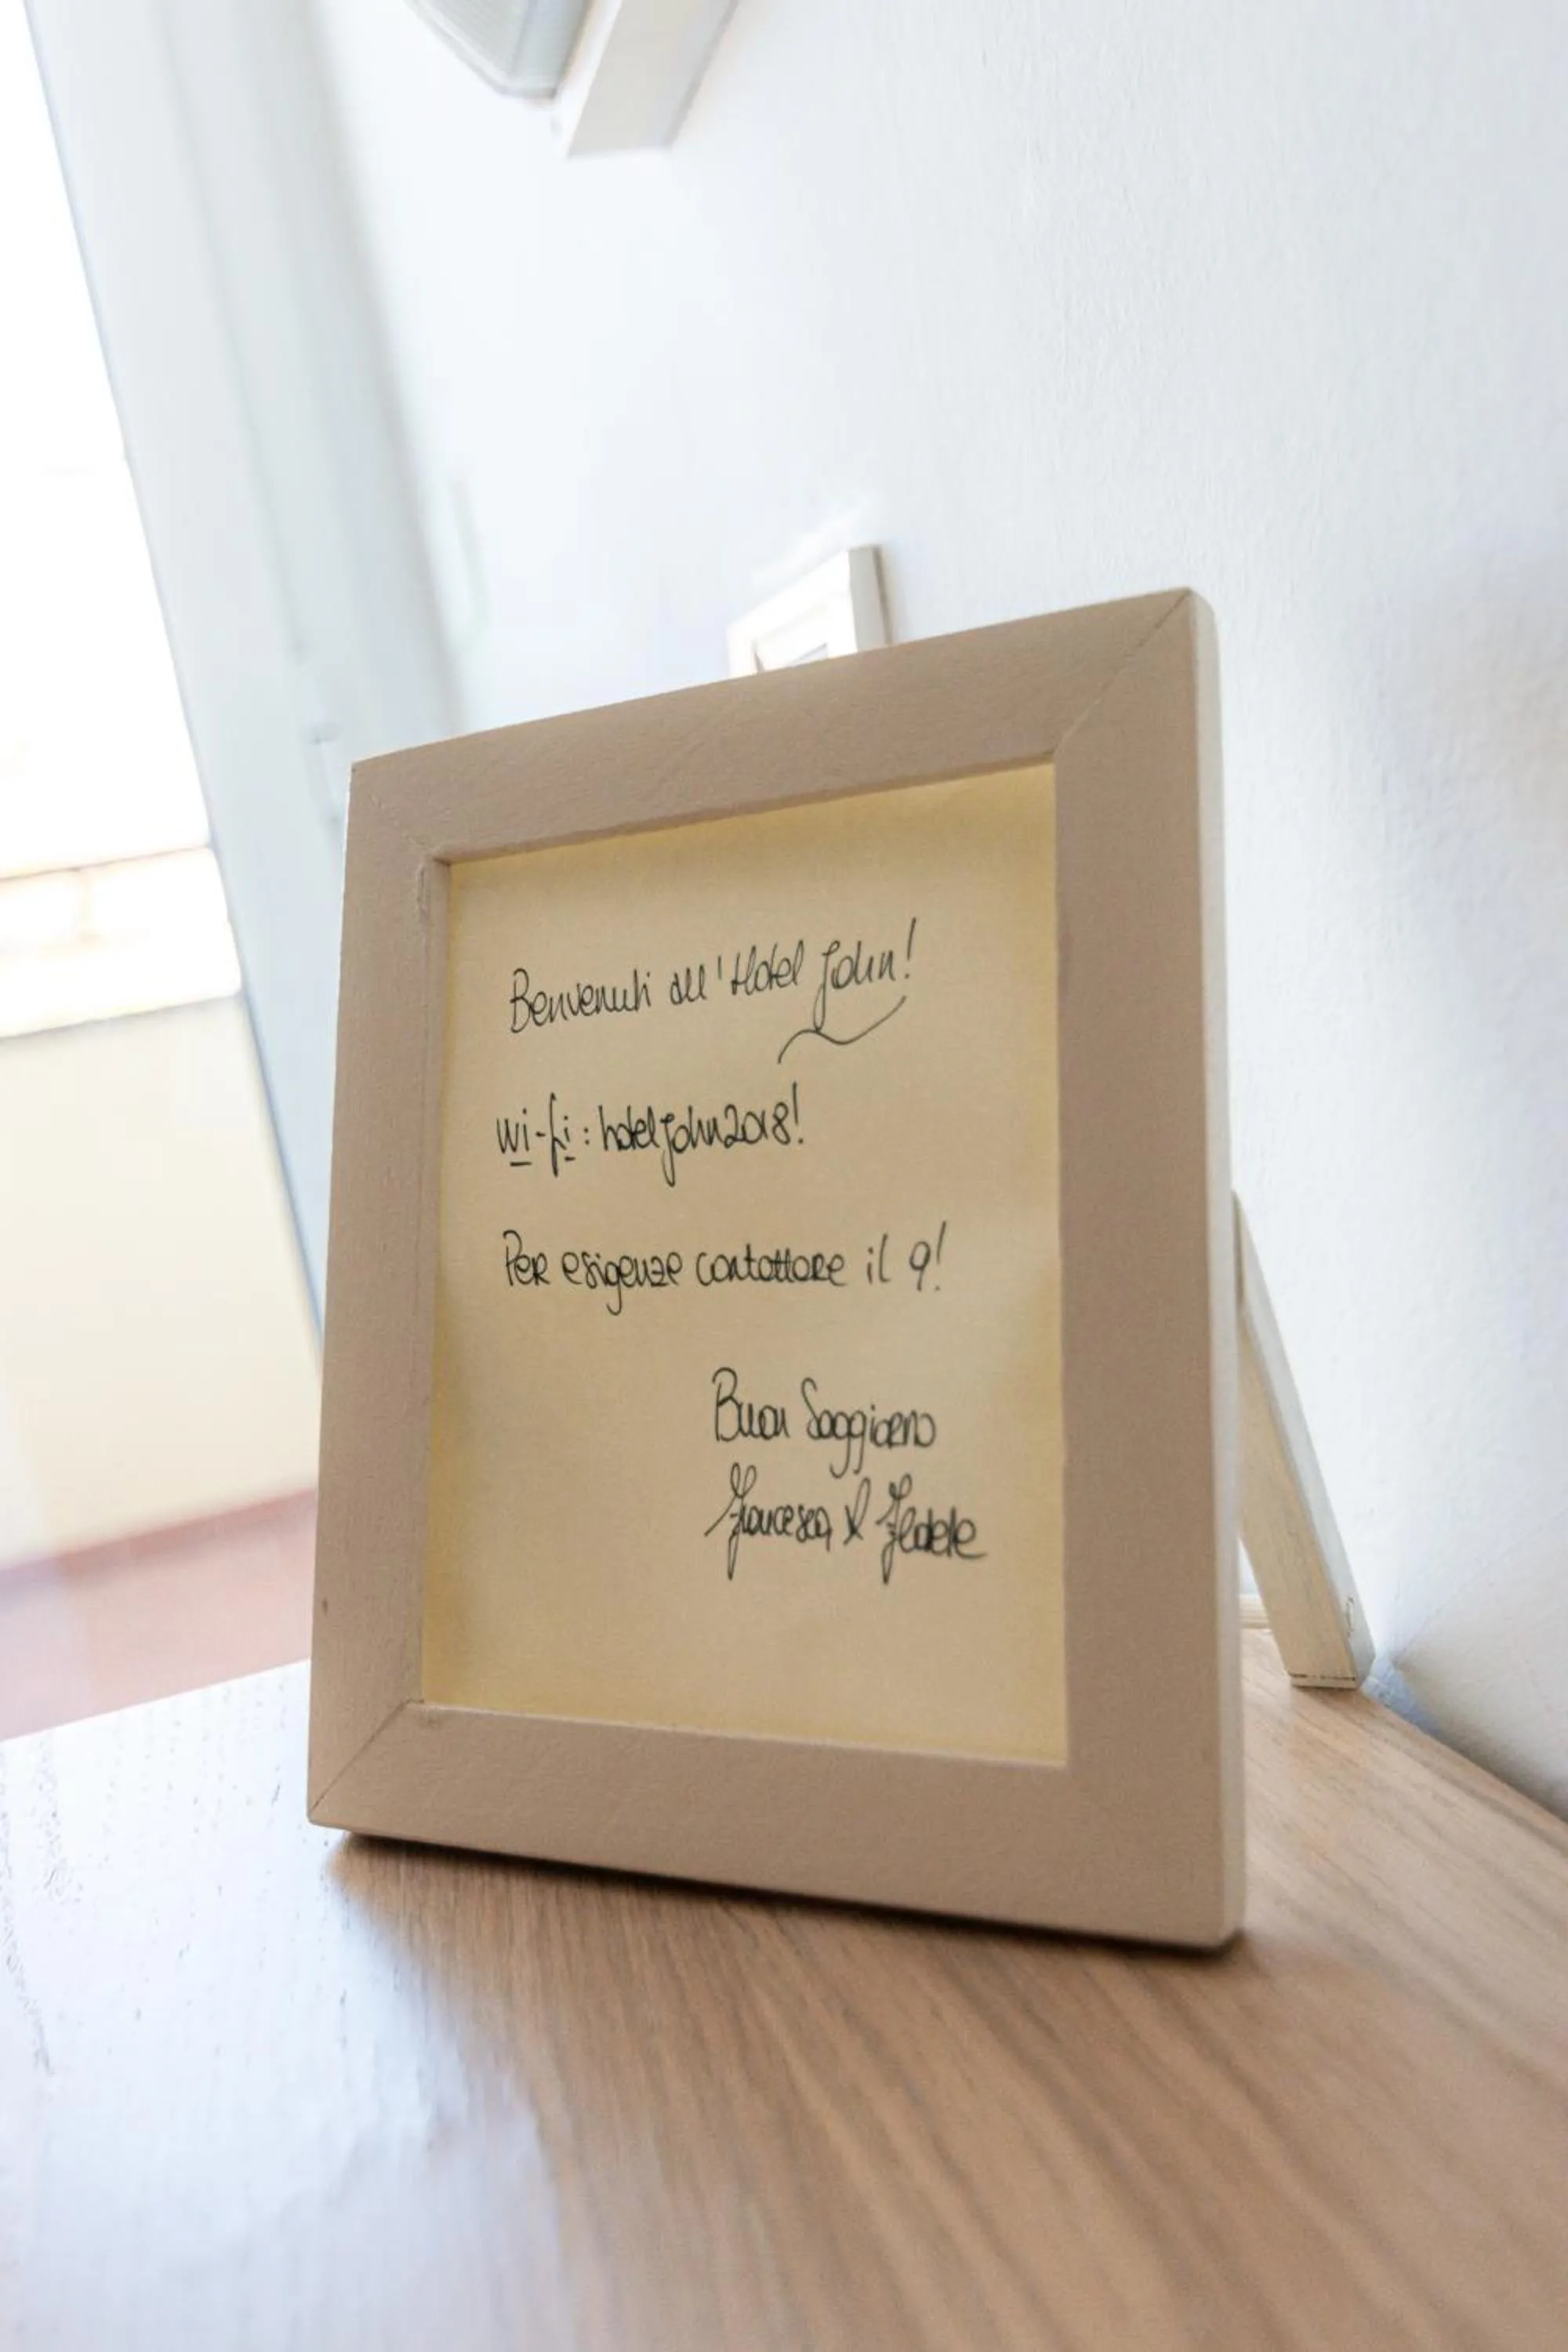 Benvenuti all'Hotel John!
Wi-fi: hoteljohn2018!
Per esigenze contattare il 9!
Buon Soggiorno
Francesca & Fedele